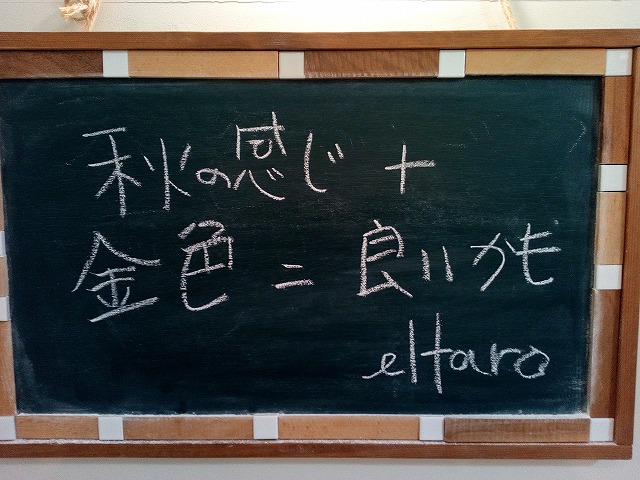 秋の感じ +
金色 = 良いかも
eltaro